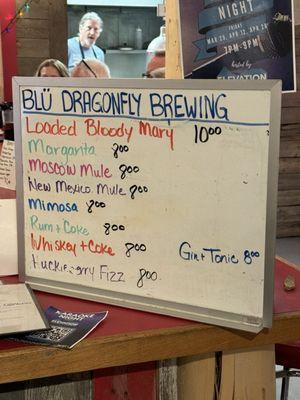 NIGHT
FRIDAY
MAR 29, APR 12, APR 26
7PM-9PM
hosted by
ELEVATION
BLÜ DRAGONFLY BREWING
Loaded Bloody Mary 10.00
Margarita 8.00
Moscow Mule 8.00
New Mexico Mule 8.00
Mimosa 8.00
Rum + Coke 8.00
Whiskey + Coke 8.00
Gin + Tonic 8.00
Huckleberry Fizz 8.00
KARAOKE
NIGHT